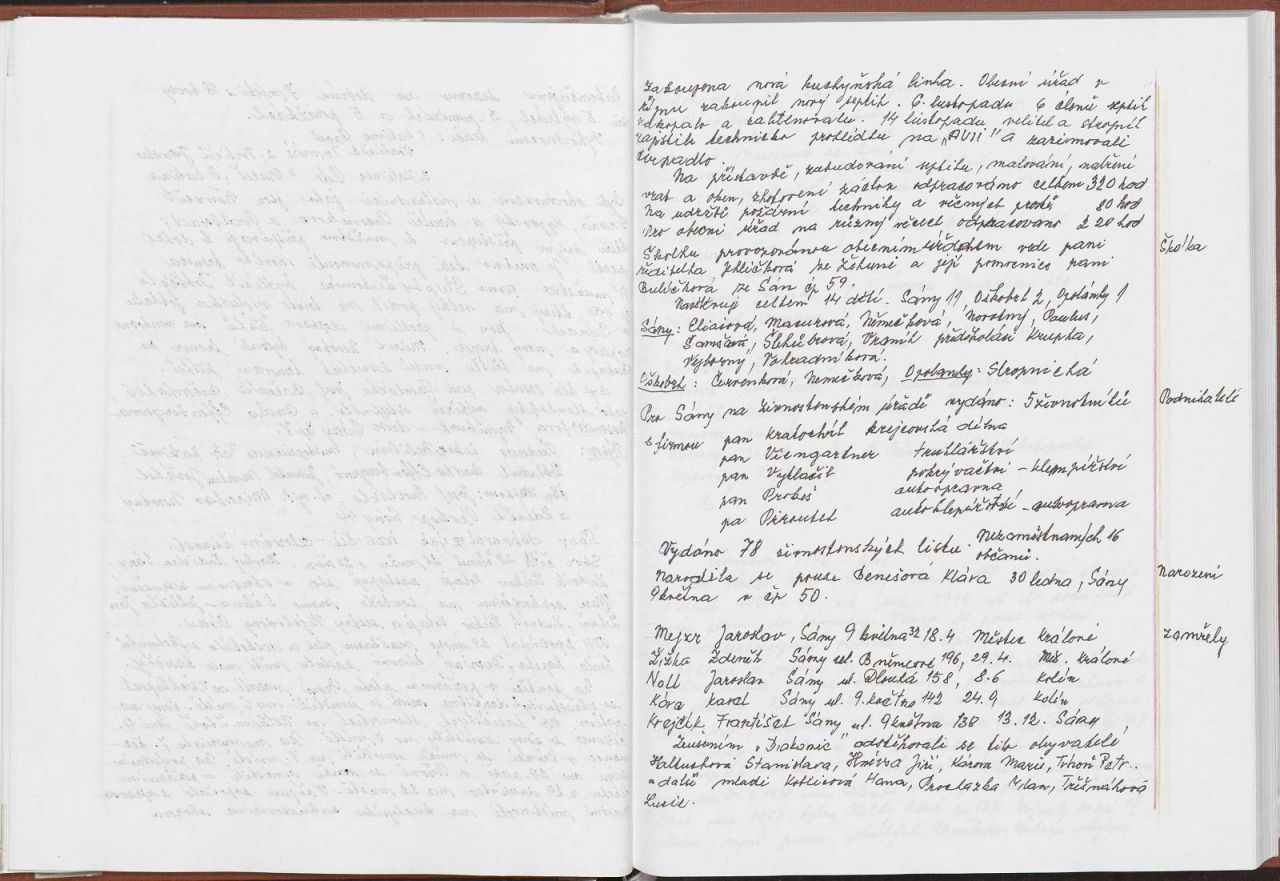 zakoupena nová kuchyňská linka. Obecní úřad v
zakoupil nový septik. 6. listopadu 6 členů septik
a zabetonovalo. 14 listopadu velitel a strojník
zajistili technickou prohlídku na „AVII" a zazimovali
čerpadlo.
Na přístavbě, zabudování septiku, malování, natření
vrat a oken, zhotovení záclon odpracováno celkem 320 hod
Na údržbě požární techniky a věcných prostř 80 hod
Pro obecní úřad na různý věcech odpracováno 220 hod
Školku provozovánou obecním úřadem vede paní Školka
ředitelka Jehličková ze Žehuně a její pomocnice paní
Bulíčková ze Sán čp 59.
Navštěvují celkem 14 dětí. Sány 11, Oškobrh 2, Opolánky 1
Sány: Eliášová, Macurová, Němečková, Novotný, Paulus,
Vraník předškoláci Krupka,
Výborný, Vohradníková.
Oškobrh: Červenková, Nemečková, Opolanky: Stropnická
Pro Sány na živnostenském úřadě vydáno: 5 živnotníků Podnikatelé
s firmou pan Kratochvíl krejčovská dílna
pan Viengartner truhlářství
pan Vytlačil pokrývačtví - klempířství
pan Probeš autoopravna
pa Piroutek autoklepířství - autoopravna
Vydáno 78 živnostenských listu. Nezaměstnaných 16
občanů.
Narodila se pouze Benešová Klára 30 ledna, Sány Narození
9 května v čp 50.
Mejzr Jaroslav, Sány 9 května 32 18.4 Městec Králové zamřely
Žižka Zdeněk Sány ul. B němcové 196, 29.4. Měs. Králové
Noll Jaroslav Sány ul. Dlouhá 158, 8.6 Kolín
Kára Karel Sány ul. 9. května 142 24.9 Kolín
Krejčík František Sány ul. 9 května 138 13.12. Sány
Zrušením „Diakonie" odstěhovali se tito obyvatelé
Stanislava, Jiří, Kárová Marie, Petr.
a další mladí Hana, Procházka Milan,
Lucie.